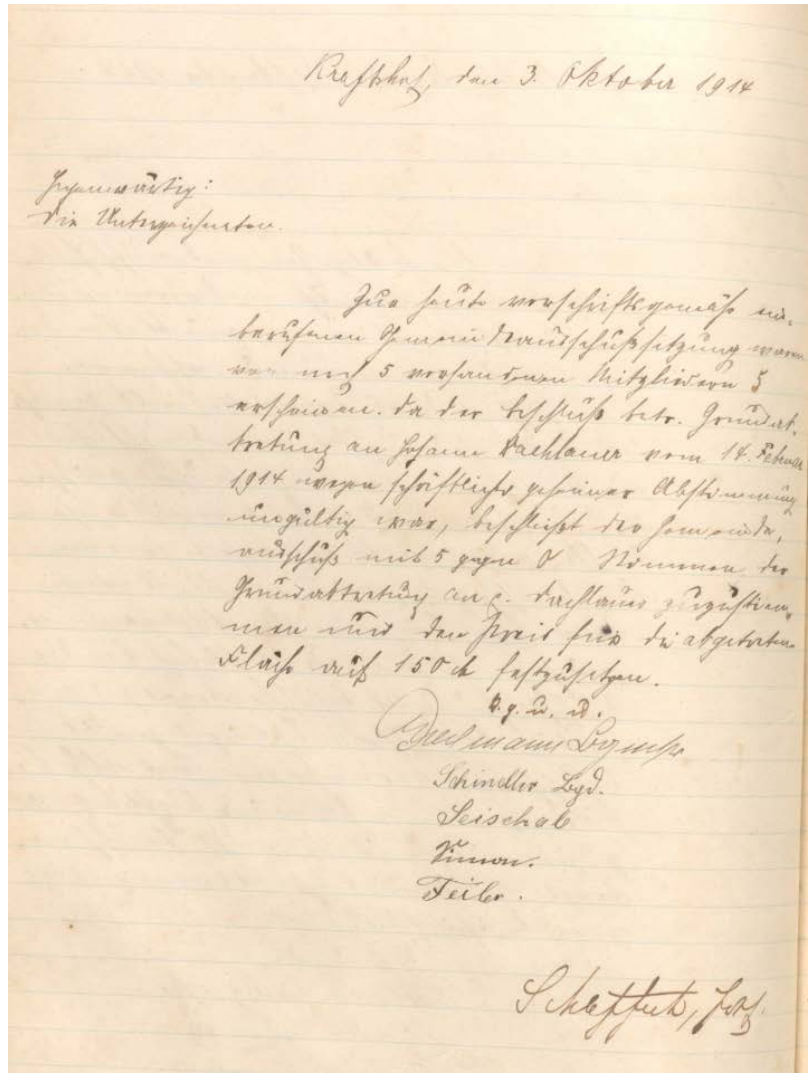 Kraftshof, den 3. Oktober 1914
Gegenwärtig:
Die Unterzeichneten.
Zur heute vorschriftsgemäß ein-
berufenen Gemeindeausschußsitzung waren
von noch 5 vorhandenen Mitgliedern 5
erschienen. Da der Beschluß betr. Grundab-
tretung an Johann Dachlauer vom 14. Februar
1914 wegen schriftlicher geheimer Abstimmung
ungültig war, beschließt der Gemeinde-
ausschuß mit 5 gegen 0 Stimmen der
Grundabtretung an p. Dachlauer zuzustim-
men und den Preis für die abgetretene
Fläche auf 150 M festzusetzen.
V. g. u. u.
Bgmstr
Schindler Bgd.
Seischab
Simon.
Feiler.